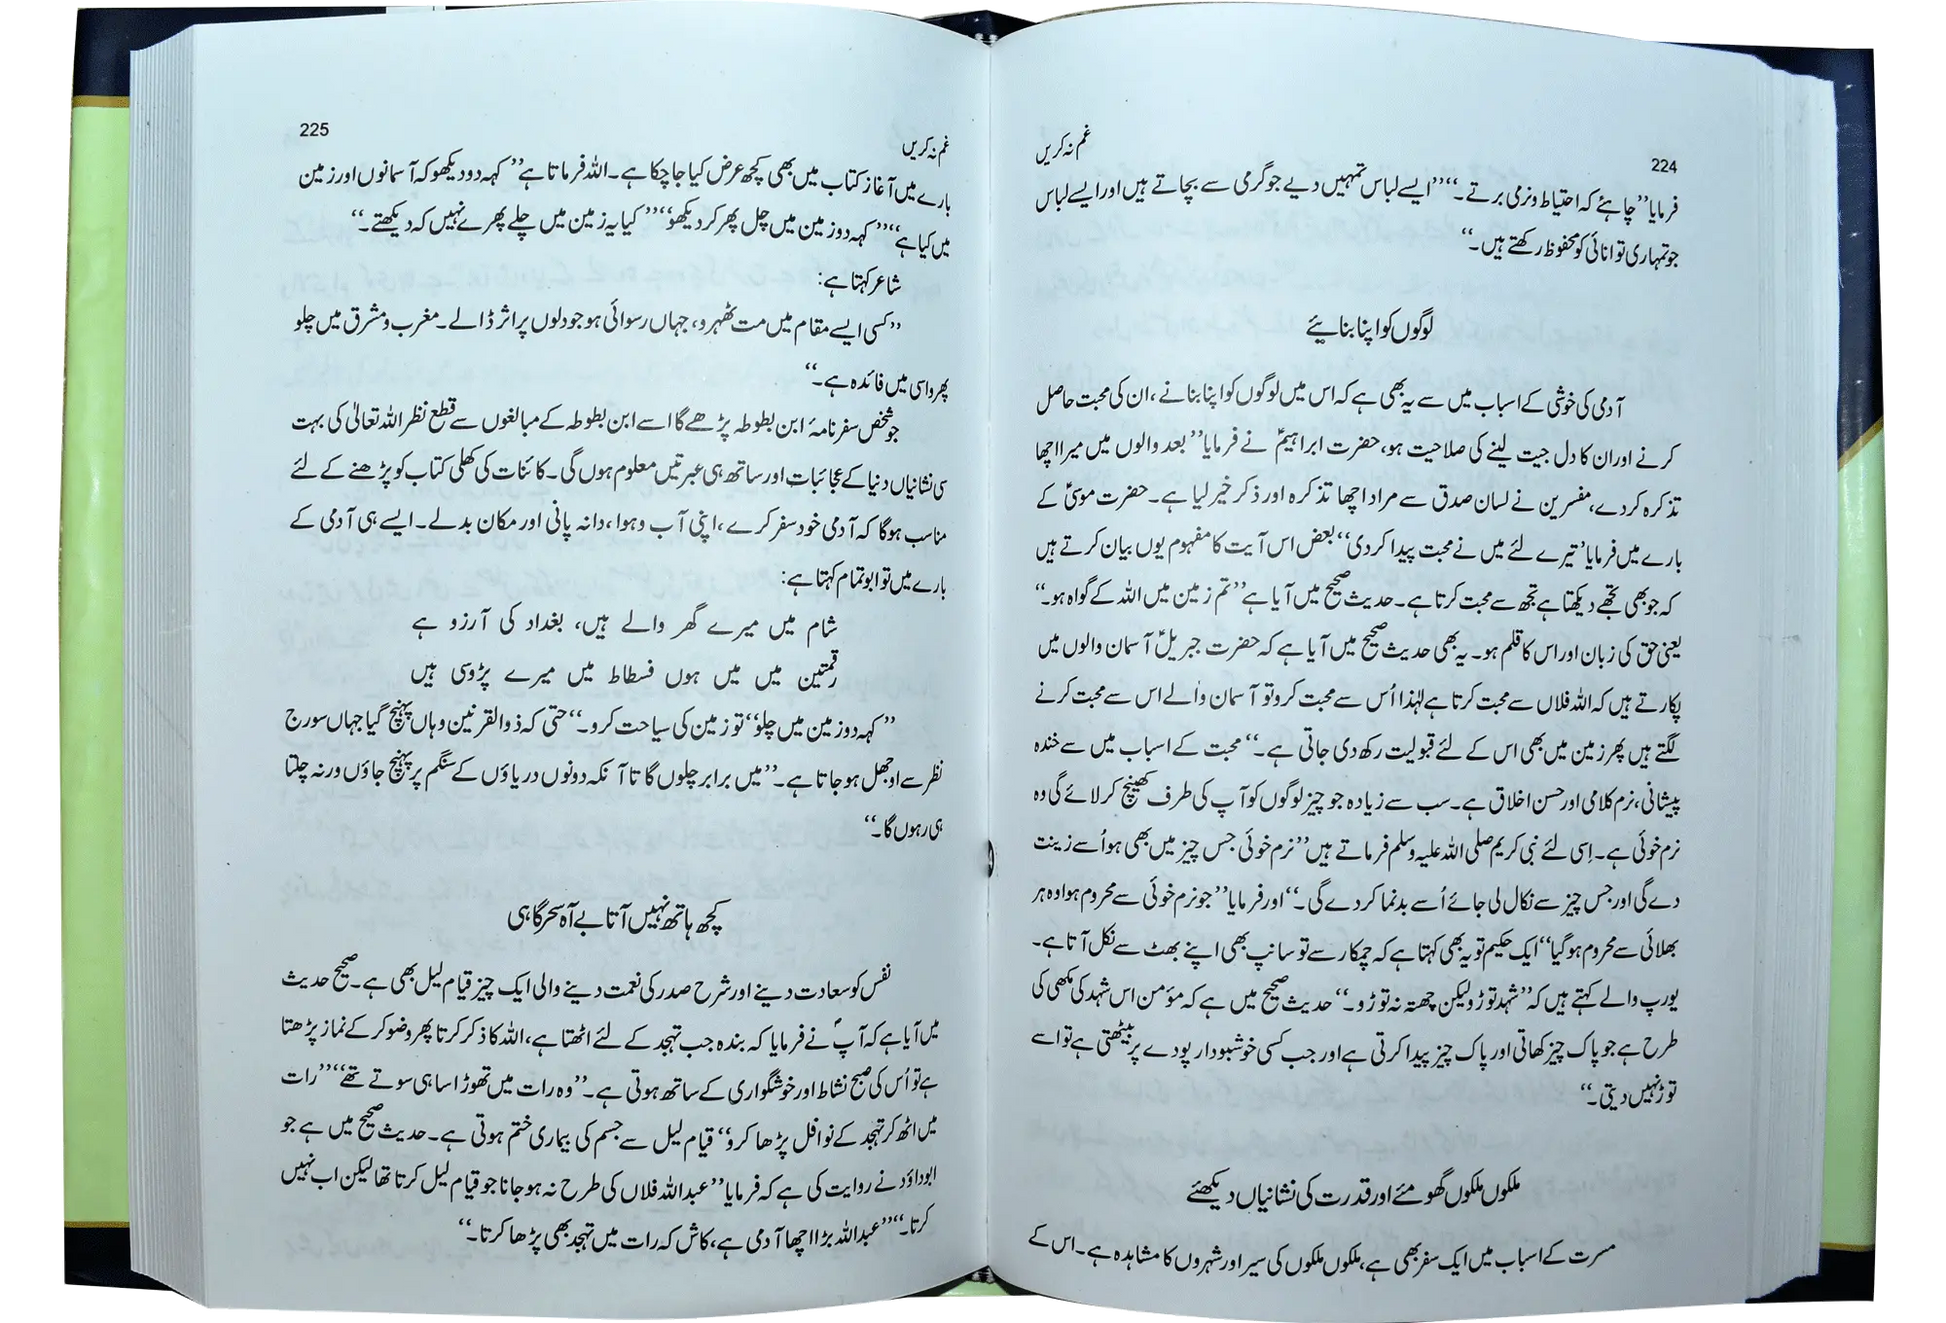 224
غم نہ کریں
فرمایا’’چاہئے کہ احتیاط ونرمی برتے۔‘‘’’ایسے لباس تمہیں دیے جو گرمی سے بچاتے ہیں اور ایسے لباس
جو تمہاری توانائی کو محفوظ رکھتے ہیں۔‘‘
لوگوں کو اپنا بنائیے
آدمی کی خوشی کے اسباب میں سے یہ بھی ہے کہ اس میں لوگوں کو اپنا بنانے، ان کی محبت حاصل
کرنے اور ان کا دل جیت لینے کی صلاحیت ہو، حضرت ابراہیمؑ نے فرمایا’’بعد والوں میں میرا اچھا
تذکرہ کردے، مفسرین نے لسان صدق سے مراد اچھا تذکرہ اور ذکر خیر لیا ہے۔ حضرت موسیٰؑ کے
بارے میں فرمایا’تیرے لئے میں نے محبت پیدا کردی‘‘بعض اس آیت کا مفہوم یوں بیان کرتے ہیں
کہ جو بھی تجھے دیکھتا ہے تجھ سے محبت کرتا ہے۔ حدیث صحیح میں آیا ہے’’تم زمین میں اللہ کے گواہ ہو۔‘‘
یعنی حق کی زبان اور اس کا قلم ہو۔ یہ بھی حدیث صحیح میں آیا ہے کہ حضرت جبریلؑ آسمان والوں میں
پکارتے ہیں کہ اللہ فلاں سے محبت کرتا ہے لہٰذا اُس سے محبت کرو تو آسمان والے اس سے محبت کرنے
لگتے ہیں پھر زمین میں بھی اس کے لئے قبولیت رکھ دی جاتی ہے۔‘‘ محبت کے اسباب میں سے خندہ
پیشانی، نرم کلامی اور حسن اخلاق ہے۔ سب سے زیادہ جو چیز لوگوں کو آپ کی طرف کھینچ کر لائے گی وہ
نرم خوئی ہے۔ اِسی لئے نبی کریم صلی اللہ علیہ وسلم فرماتے ہیں’’نرم خوئی جس چیز میں بھی ہو اُسے زینت
دے گی اور جس چیز سے نکال لی جائے اُسے بدنما کردے گی۔‘‘اور فرمایا’’جو نرم خوئی سے محروم ہوا وہ ہر
بھلائی سے محروم ہو گیا‘‘ ایک حکیم تو یہ بھی کہتا ہے کہ چمکار سے تو سانپ بھی اپنے بھٹ سے نکل آتا ہے۔
یورپ والے کہتے ہیں کہ’’شہد توڑ ولیکن چھتہ نہ توڑو۔‘‘ حدیث صحیح میں ہے کہ مؤمن اس شہد کی مکھی کی
طرح ہے جو پاک چیز کھاتی اور پاک چیز پیدا کرتی ہے اور جب کسی خوشبودار پودے پر بیٹھتی ہے تو اسے
توڑ نہیں دیتی۔‘‘
ملکوں ملکوں گھومئے اور قدرت کی نشانیاں دیکھئے
مسرت کے اسباب میں ایک سفر بھی ہے، ملکوں ملکوں کی سیر اور شہروں کا مشاہدہ ہے۔ اس کے
225
غم نہ کریں
بارے میں آغاز کتاب میں بھی کچھ عرض کیا جا چکا ہے۔ اللہ فرماتا ہے’’کہہ دو دیکھو کہ آسمانوں اور زمین
میں کیا ہے‘‘’’کہہ دو زمین میں چل پھر کر دیکھو‘‘’’کیا یہ زمین میں چلے پھرے نہیں کہ دیکھتے۔‘‘
شاعر کہتا ہے:
’’کسی ایسے مقام میں مت ٹھہرو، جہاں رسوائی ہو جو دلوں پر اثر ڈالے۔ مغرب و مشرق میں چلو
پھرو اسی میں فائدہ ہے۔‘‘
جو شخص سفرنامۂ ابن بطوطہ پڑھے گا اسے ابن بطوطہ کے مبالغوں سے قطع نظر اللہ تعالیٰ کی بہت
سی نشانیاں دنیا کے عجائبات اور ساتھ ہی عبرتیں معلوم ہوں گی۔ کائنات کی کھلی کتاب کو پڑھنے کے لئے
مناسب ہوگا کہ آدمی خود سفر کرے، اپنی آب وہوا، دانہ پانی اور مکان بدلے۔ ایسے ہی آدمی کے
بارے میں تو ابوتمام کہتا ہے:
شام میں میرے گھر والے ہیں، بغداد کی آرزو ہے
رقمتین میں میں ہوں فسطاط میں میرے پڑوسی ہیں
’’کہہ دو زمین میں چلو‘‘ تو زمین کی سیاحت کرو۔‘‘ حتی کہ ذوالقرنین وہاں پہنچ گیا جہاں سورج
نظر سے اوجھل ہو جاتا ہے۔’’میں برابر چلوں گا تا آنکہ دونوں دریاؤں کے سنگم پر پہنچ جاؤں ورنہ چلتا
ہی رہوں گا۔‘‘
کچھ ہاتھ نہیں آتا بے آہ سحر گاہی
نفس کو سعادت دینے اور شرح صدر کی نعمت دینے والی ایک چیز قیام لیل بھی ہے۔ صحیح حدیث
میں آیا ہے کہ آپؐ نے فرمایا کہ بندہ جب تہجد کے لئے اٹھتا ہے، اللہ کا ذکر کرتا پھر وضو کر کے نماز پڑھتا
ہے تو اُس کی صبح نشاط اور خوشگواری کے ساتھ ہوتی ہے۔’’وہ رات میں تھوڑا سا ہی سوتے تھے‘‘’’رات
میں اٹھ کر تہجد کے نوافل پڑھا کرو‘‘ قیام لیل سے جسم کی بیماری ختم ہوتی ہے۔ حدیث صحیح میں ہے جو
ابوداؤد نے روایت کی ہے کہ فرمایا’’عبداللہ فلاں کی طرح نہ ہو جانا جو قیام لیل کرتا تھا لیکن اب نہیں
کرتا۔‘‘’’عبداللہ بڑا اچھا آدمی ہے، کاش کہ رات میں تہجد بھی پڑھا کرتا۔‘‘